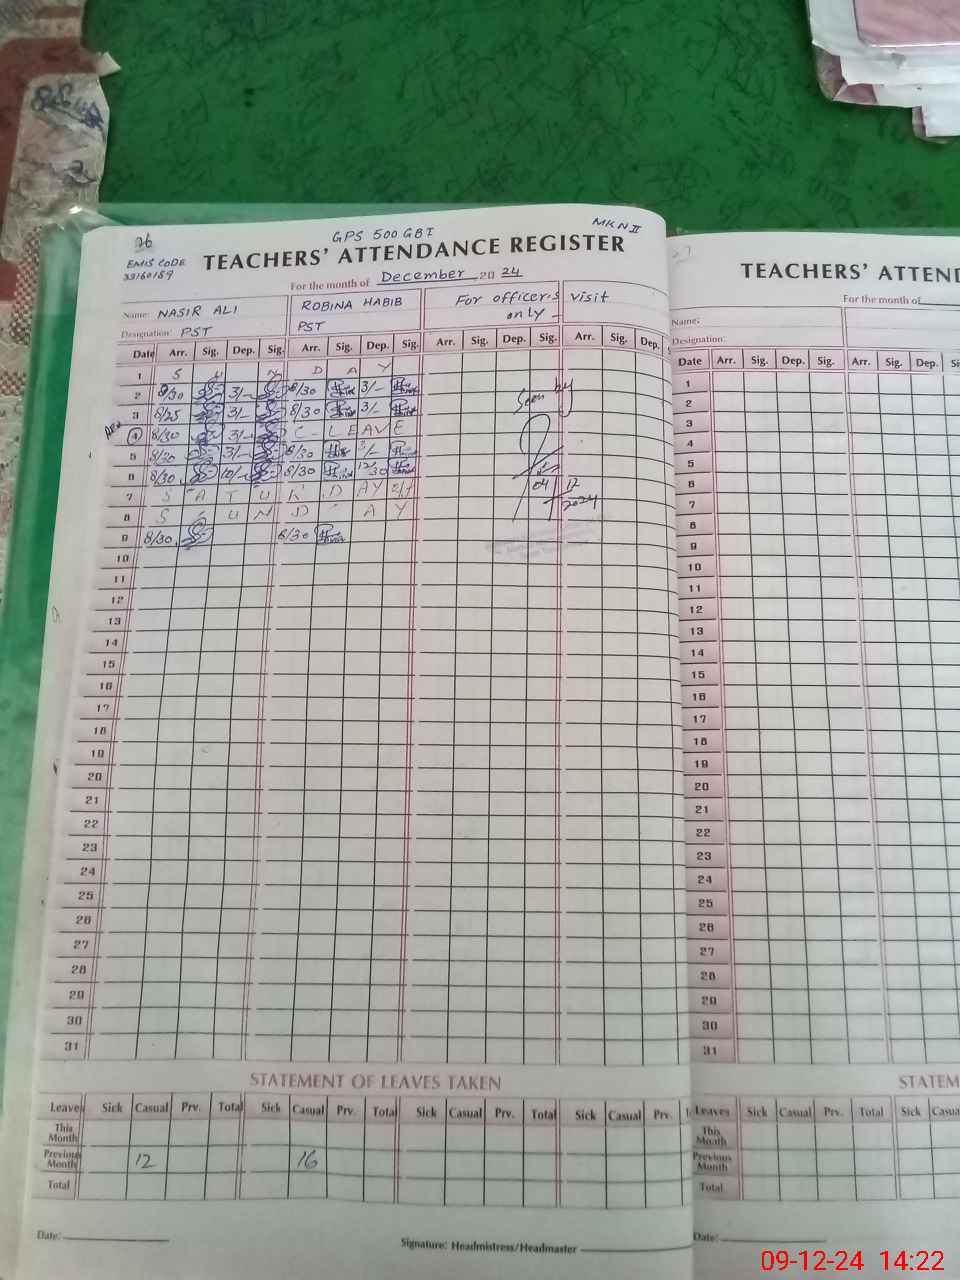 26
GPS 500 GBI
MKN II
EMIS CODE
33160159
TEACHERS' ATTENDANCE REGISTER
For the month of December 2024
Name: NASIR ALI
ROBINA HABIB
For officers visit
only -
Designation: PST
PST
Date Arr. Sig. Dep. Sig. Arr. Sig. Dep. Sig. Arr. Sig. Dep. Sig. Arr. Sig. Dep.
1 S U N D A Y
2 8/30 3/- 8/30 3/-
3 8/25 3/- 8/30 3/-
4 8/30 3/- C - LEAVE
5 8/20 3/- 8/30 3/-
6 8/30 12/- 8/30 12/30
7 S A T U R D AY
8 S U N D A Y
9 8/30 8/30
Seen by
04/12/2024
10
11
12
13
14
15
16
17
18
19
20
21
22
23
24
25
26
27
28
29
30
31
STATEMENT OF LEAVES TAKEN
Leaves Sick Casual Prv. Total Sick Casual Prv. Total Sick Casual Prv. Total Sick Casual Prv.
This Month
Previous Month 12 16
Total
Date:
Signature: Headmistress/Headmaster
27
TEACHERS' ATTEND
For the month of
Name:
Designation:
Date Arr. Sig. Dep. Sig. Arr. Sig. Dep.
1
2
3
4
5
6
7
8
9
10
11
12
13
14
15
16
17
18
19
20
21
22
23
24
25
26
27
28
29
30
31
STATEM
Leaves Sick Casual Prv. Total Sick Casua
This Month
Previous Month
Total
Date:
09-12-24 14:22